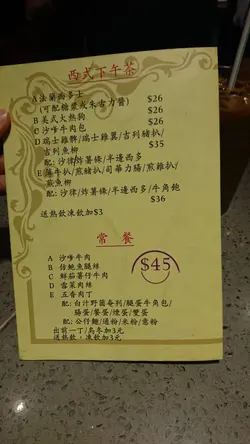 西式下午茶
A 法蘭西多士 $26
(可配糖漿或朱古力醬)
B 美式大熱狗 $26
C 沙嗲牛肉包 $26
D 瑞士雞髀/瑞士雞翼/吉列豬扒/ $35
吉列魚柳
配: 沙律/炸薯條/半邊西多
E 薄牛扒/煎豬扒/司華力腸/煎雞扒/
煎魚柳
配: 沙律/炸薯條/半邊西多/牛角飽
$36
送熱飲凍飲加$3
常餐
$45
A 沙嗲牛肉
B 仿鮑魚腿絲
C 鮮茄薯仔牛肉
D 雪菜肉絲
E 五香肉丁
配: 白汁野菌奄列/腿蛋牛角包/
腸蛋/餐蛋/煙蛋/雙蛋
配: 公仔麵/通粉/米粉/意粉
出前一丁/烏冬加3元
送熱飲，凍飲加3元